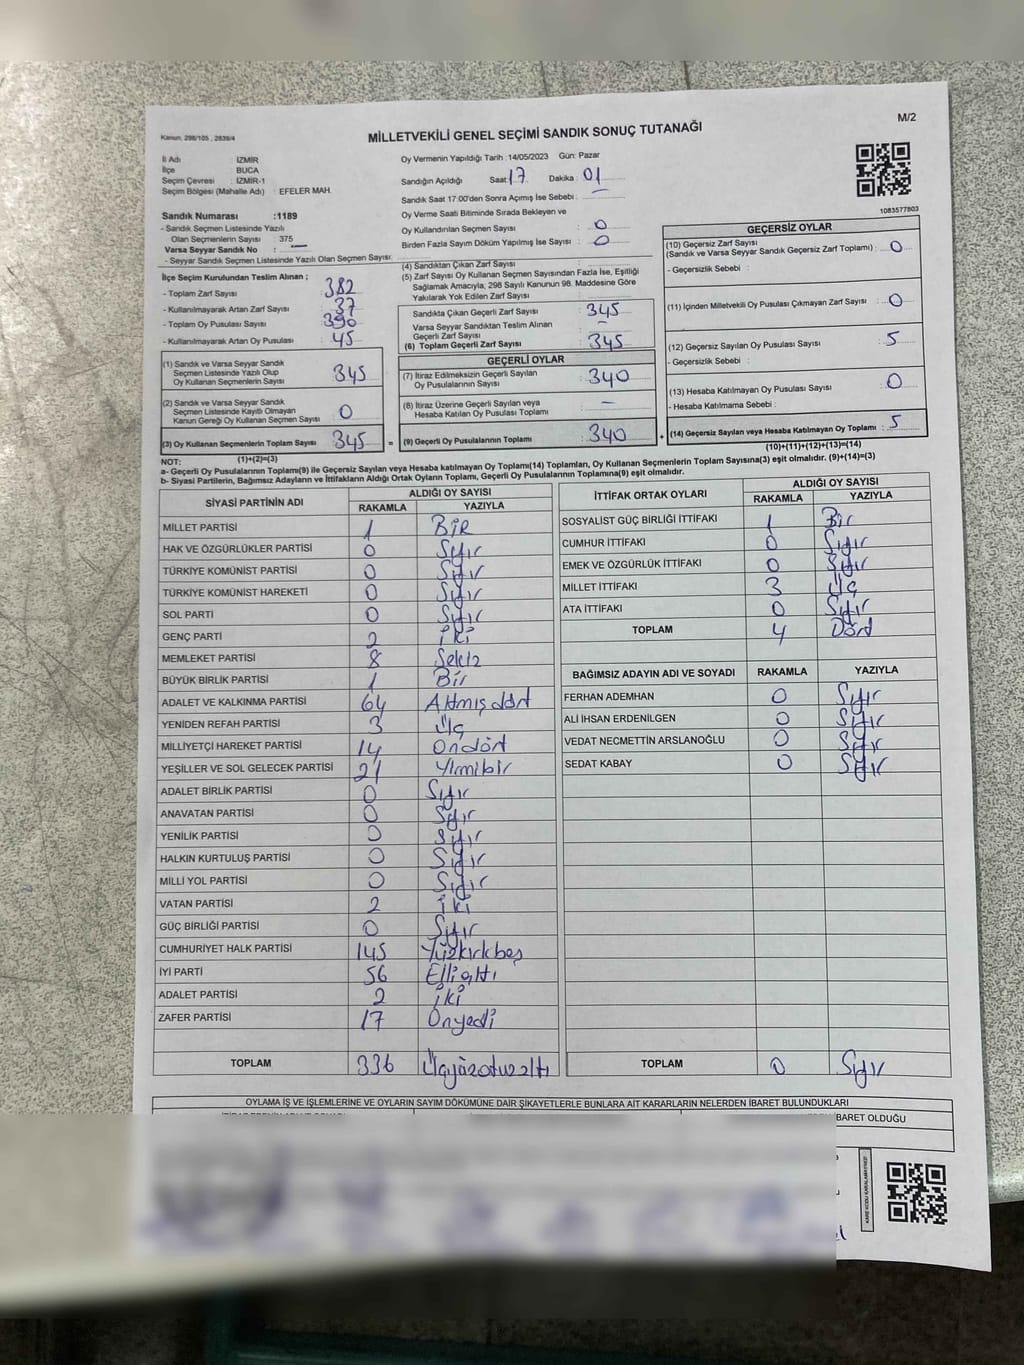 Kanun, 298/105 , 2839/4
MİLLETVEKİLİ GENEL SEÇİMİ SANDIK SONUÇ TUTANAĞI
M/2
İl Adı : İZMİR
İlçe : BUCA
Seçim Çevresi : İZMİR-1
Seçim Bölgesi (Mahalle Adı) : EFELER MAH.
Sandık Numarası :1189
- Sandık Seçmen Listesinde Yazılı
Olan Seçmenlerin Sayısı : 375
Varsa Seyyar Sandık No : —
- Seyyar Sandık Seçmen Listesinde Yazılı Olan Seçmen Sayısı:
Oy Vermenin Yapıldığı Tarih :14/05/2023 Gün: Pazar
Sandığın Açıldığı Saat:17 Dakika : 01
Sandık Saat 17:00'den Sonra Açımış İse Sebebi : —
Oy Verme Saati Bitiminde Sırada Bekleyen ve
Oy Kullandırılan Seçmen Sayısı : 0
Birden Fazla Sayım Döküm Yapılmış İse Sayısı : 0
1083577803
İlçe Seçim Kurulundan Teslim Alınan ;
- Toplam Zarf Sayısı : 382
- Kullanılmayarak Artan Zarf Sayısı : 37
- Toplam Oy Pusulası Sayısı : 390
- Kullanılmayarak Artan Oy Pusulası : 45
(1) Sandık ve Varsa Seyyar Sandık
Seçmen Listesinde Yazılı Olup
Oy Kullanan Seçmenlerin Sayısı : 345
(2) Sandık ve Varsa Seyyar Sandık
Seçmen Listesinde Kayıtlı Olmayan
Kanun Gereği Oy Kullanan Seçmen Sayısı : 0
(3) Oy Kullanan Seçmenlerin Toplam Sayısı : 345 =
(1)+(2)=(3)
(4) Sandıktan Çıkan Zarf Sayısı :
(5) Zarf Sayısı Oy Kullanan Seçmen Sayısından Fazla İse, Eşitliği
Sağlamak Amacıyla, 298 Sayılı Kanunun 98. Maddesine Göre
Yakılarak Yok Edilen Zarf Sayısı :
Sandıkta Çıkan Geçerli Zarf Sayısı : 345
Varsa Seyyar Sandıktan Teslim Alınan
Geçerli Zarf Sayısı : —
(6) Toplam Geçerli Zarf Sayısı : 345
GEÇERLİ OYLAR
(7) İtiraz Edilmeksizin Geçerli Sayılan
Oy Pusulalarının Sayısı : 340
(8) İtiraz Üzerine Geçerli Sayılan veya
Hesaba Katılan Oy Pusulası Toplamı : —
(9) Geçerli Oy Pusulalarının Toplamı : 340 +
GEÇERSİZ OYLAR
(10) Geçersiz Zarf Sayısı
(Sandık ve Varsa Seyyar Sandık Geçersiz Zarf Toplamı) : 0
- Geçersizlik Sebebi :
(11) İçinden Milletvekili Oy Pusulası Çıkmayan Zarf Sayısı : 0
(12) Geçersiz Sayılan Oy Pusulası Sayısı : 5
- Geçersizlik Sebebi :
(13) Hesaba Katılmayan Oy Pusulası Sayısı : 0
- Hesaba Katılmama Sebebi :
(14) Geçersiz Sayılan veya Hesaba Katılmayan Oy Toplamı : 5
(10)+(11)+(12)+(13)=(14)
NOT:
a- Geçerli Oy Pusulalarının Toplamı(9) ile Geçersiz Sayılan veya Hesaba katılmayan Oy Toplamı(14) Toplamları, Oy Kullanan Seçmenlerin Toplam Sayısına(3) eşit olmalıdır. (9)+(14)=(3)
b- Siyasi Partilerin, Bağımsız Adayların ve İttifakların Aldığı Ortak Oyların Toplamı, Geçerli Oy Pusulalarının Toplamına(9) eşit olmalıdır.
SİYASİ PARTİNİN ADI ALDIĞI OY SAYISI
RAKAMLA YAZIYLA
MİLLET PARTİSİ 1 BİR
HAK VE ÖZGÜRLÜKLER PARTİSİ 0 Sıfır
TÜRKİYE KOMÜNİST PARTİSİ 0 Sıfır
TÜRKİYE KOMÜNİST HAREKETİ 0 Sıfır
SOL PARTİ 0 Sıfır
GENÇ PARTİ 2 İki
MEMLEKET PARTİSİ 8 Sekiz
BÜYÜK BİRLİK PARTİSİ 1 Bir
ADALET VE KALKINMA PARTİSİ 64 Altmışdört
YENİDEN REFAH PARTİSİ 3 Üç
MİLLİYETÇİ HAREKET PARTİSİ 14 Ondört
YEŞİLLER VE SOL GELECEK PARTİSİ 21 Yirmibir
ADALET BİRLİK PARTİSİ 0 Sıfır
ANAVATAN PARTİSİ 0 Sıfır
YENİLİK PARTİSİ 0 Sıfır
HALKIN KURTULUŞ PARTİSİ 0 Sıfır
MİLLİ YOL PARTİSİ 0 Sıfır
VATAN PARTİSİ 2 İki
GÜÇ BİRLİĞİ PARTİSİ 0 Sıfır
CUMHURİYET HALK PARTİSİ 145 Yüzkırkbeş
İYİ PARTİ 56 Ellialtı
ADALET PARTİSİ 2 İki
ZAFER PARTİSİ 17 Onyedi
TOPLAM 336 Üçyüzotuzaltı
İTTİFAK ORTAK OYLARI ALDIĞI OY SAYISI
RAKAMLA YAZIYLA
SOSYALİST GÜÇ BİRLİĞİ İTTİFAKI 1 Bir
CUMHUR İTTİFAKI 0 Sıfır
EMEK VE ÖZGÜRLÜK İTTİFAKI 0 Sıfır
MİLLET İTTİFAKI 3 Üç
ATA İTTİFAKI 0 Sıfır
TOPLAM 4 Dört
BAĞIMSIZ ADAYIN ADI VE SOYADI RAKAMLA YAZIYLA
FERHAN ADEMHAN 0 Sıfır
ALİ İHSAN ERDENİLGEN 0 Sıfır
VEDAT NECMETTİN ARSLANOĞLU 0 Sıfır
SEDAT KABAY 0 Sıfır
TOPLAM 0 Sıfır
OYLAMA İŞ VE İŞLEMLERİNE VE OYLARIN SAYIM DÖKÜMÜNE DAİR ŞİKAYETLERLE BUNLARA AİT KARARLARIN NELERDEN İBARET BULUNDUKLARI
İBARET OLDUĞU
KARE KODU KARALAMAYINIZ!